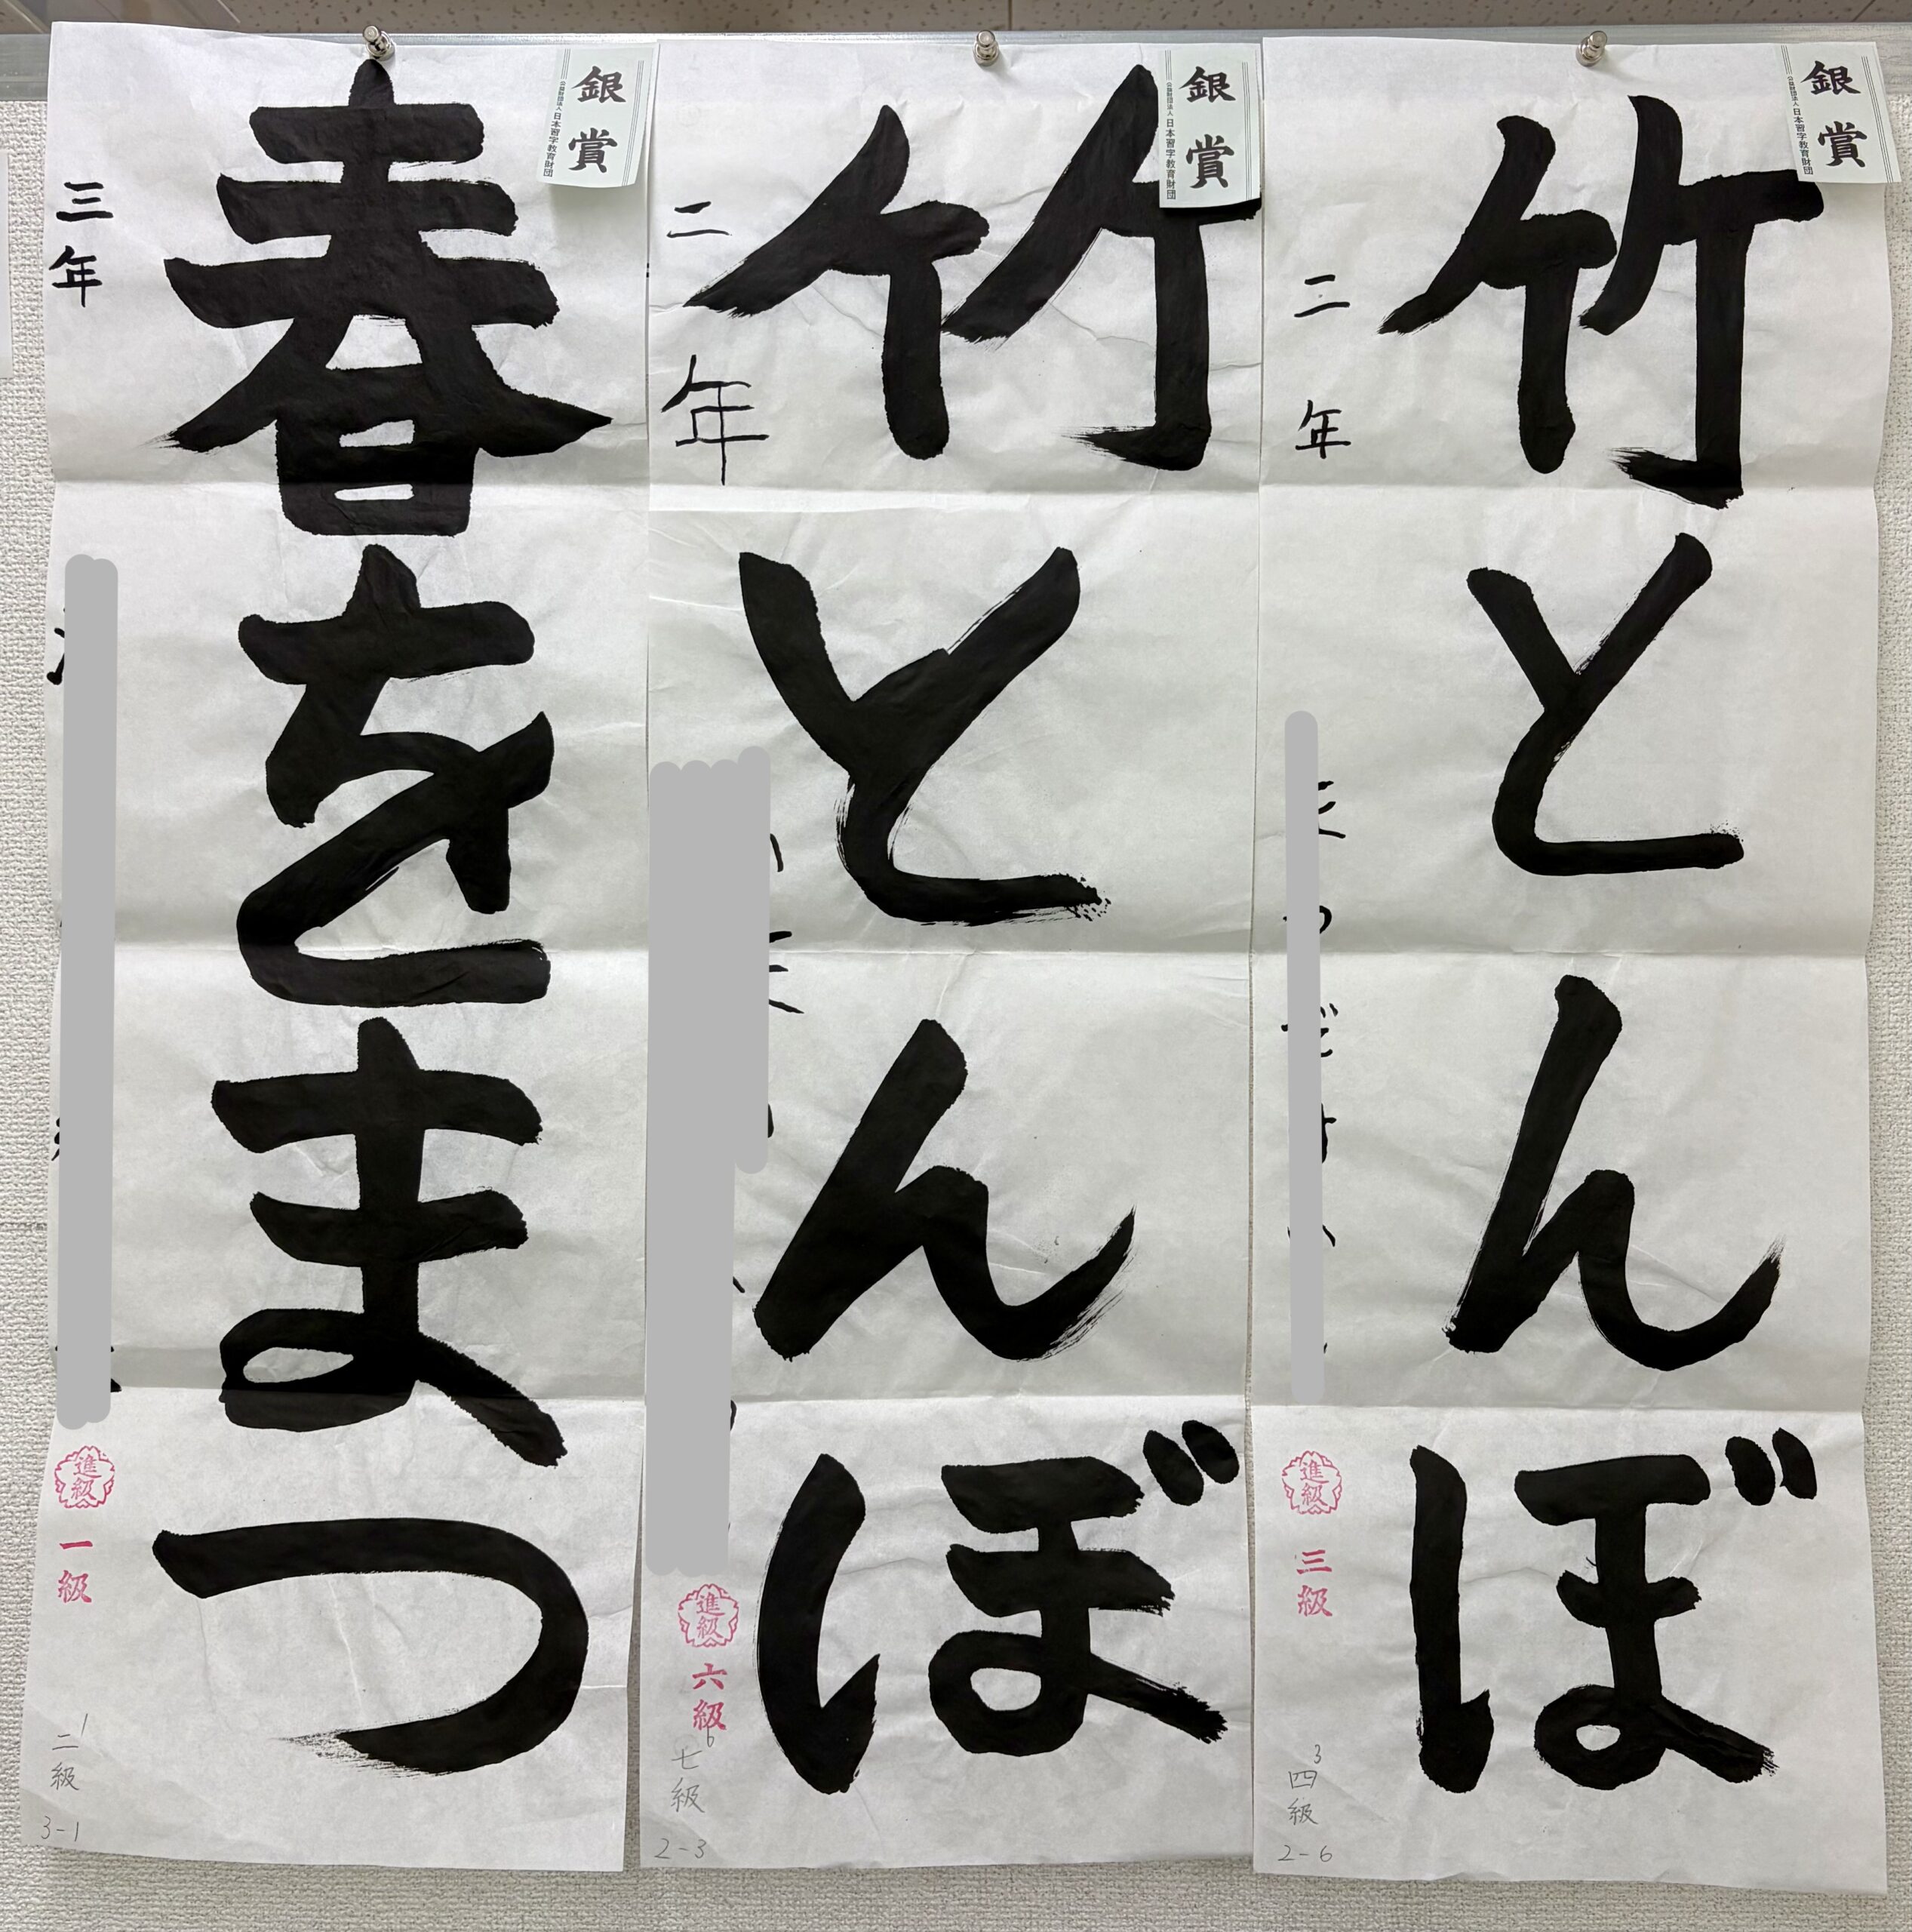 竹とんぼ
銀賞
公益財団法人 日本習字教育財団
二年
進級
三級
3
四級
2-6
竹とんぼ
銀賞
公益財団法人 日本習字教育財団
二年
進級
六級
6
七級
2-3
春をまつ
銀賞
公益財団法人 日本習字教育財団
三年
進級
一級
1
二級
3-1